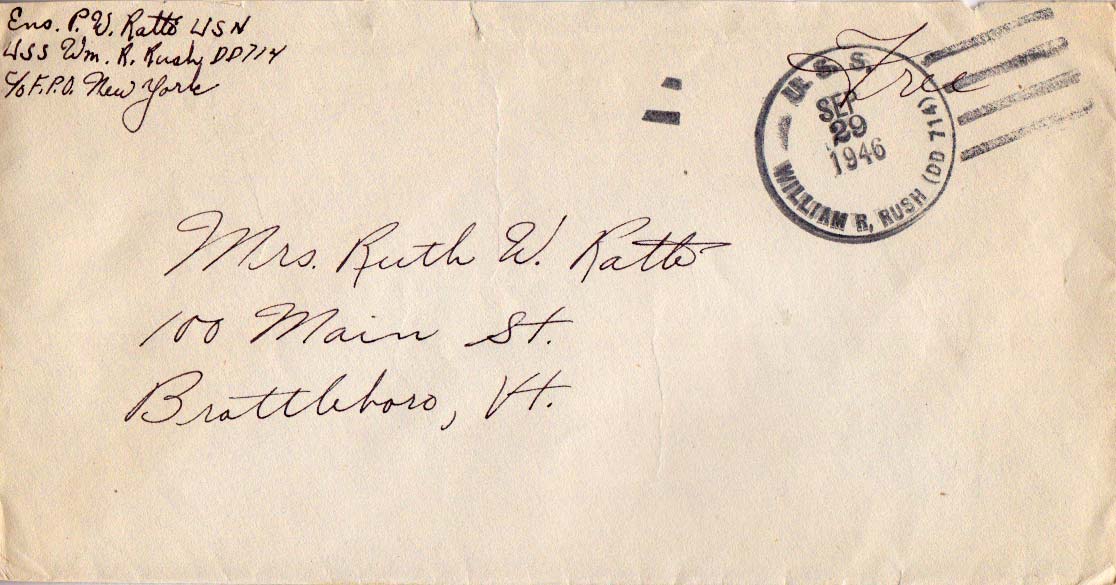 Ens. P. W. Ratté USN
USS Wm. R. Rush DD714
c/o F.P.O. New York
Free
U. S. S.
SEP
29
1946
WILLIAM R, RUSH (DD 714)
Mrs. Ruth W. Ratté
100 Main St.
Brattleboro, Vt.